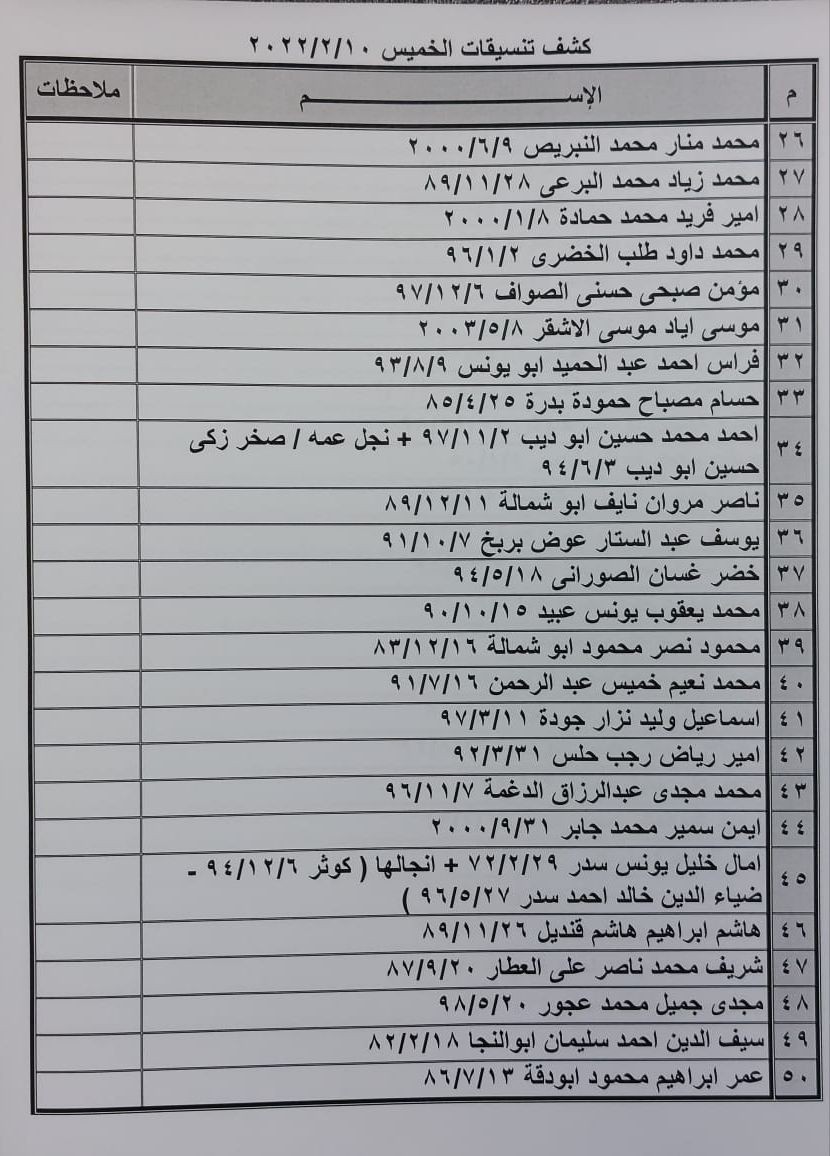 كشف تنسيقات الخميس ٢٠٢٢/٢/١٠
م الإســـــــــــم ملاحظات
٢٦ محمد منار محمد النبريص ٢٠٠٠/٦/٩
٢٧ محمد زياد محمد البرعى ٨٩/١١/٢٨
٢٨ امير فريد محمد حمادة ٢٠٠٠/١/٨
٢٩ محمد داود طلب الخضرى ٩٦/١/٢
٣٠ مؤمن صبحى حسنى الصواف ٩٧/١٢/٦
٣١ موسى اياد موسى الاشقر ٢٠٠٣/٥/٨
٣٢ فراس احمد عبد الحميد ابو يونس ٩٣/٨/٩
٣٣ حسام مصباح حمودة بدرة ٨٥/٤/٢٥
٣٤ احمد محمد حسين ابو ديب ٩٧/١١/٢ + نجل عمه / صخر زكى
حسين ابو ديب ٩٤/٦/٣
٣٥ ناصر مروان نايف ابو شمالة ٨٩/١٢/١١
٣٦ يوسف عبد الستار عوض بربخ ٩١/١٠/٧
٣٧ خضر غسان الصورانى ٩٤/٥/١٨
٣٨ محمد يعقوب يونس عبيد ٩٠/١٠/١٥
٣٩ محمود نصر محمود ابو شمالة ٨٣/١٢/١٦
٤٠ محمد نعيم خميس عبد الرحمن ٩١/٧/١٦
٤١ اسماعيل وليد نزار جودة ٩٧/٣/١١
٤٢ امير رياض رجب حلس ٩٢/٣/٣١
٤٣ محمد مجدى عبدالرزاق الدغمة ٩٦/١١/٧
٤٤ ايمن سمير محمد جابر ٢٠٠٠/٩/٣١
٤٥ امال خليل يونس سدر ٧٢/٢/٢٩ + انجالها ( كوثر ٩٤/١٢/٦ -
ضياء الدين خالد احمد سدر ٩٦/٥/٢٧ )
٤٦ هاشم ابراهيم هاشم قنديل ٨٩/١١/٢٦
٤٧ شريف محمد ناصر على العطار ٨٧/٩/٢٠
٤٨ مجدى جميل محمد عجور ٩٨/٥/٢٠
٤٩ سيف الدين احمد سليمان ابوالنجا ٨٢/٢/١٨
٥٠ عمر ابراهيم محمود ابودقة ٨٦/٧/١٣